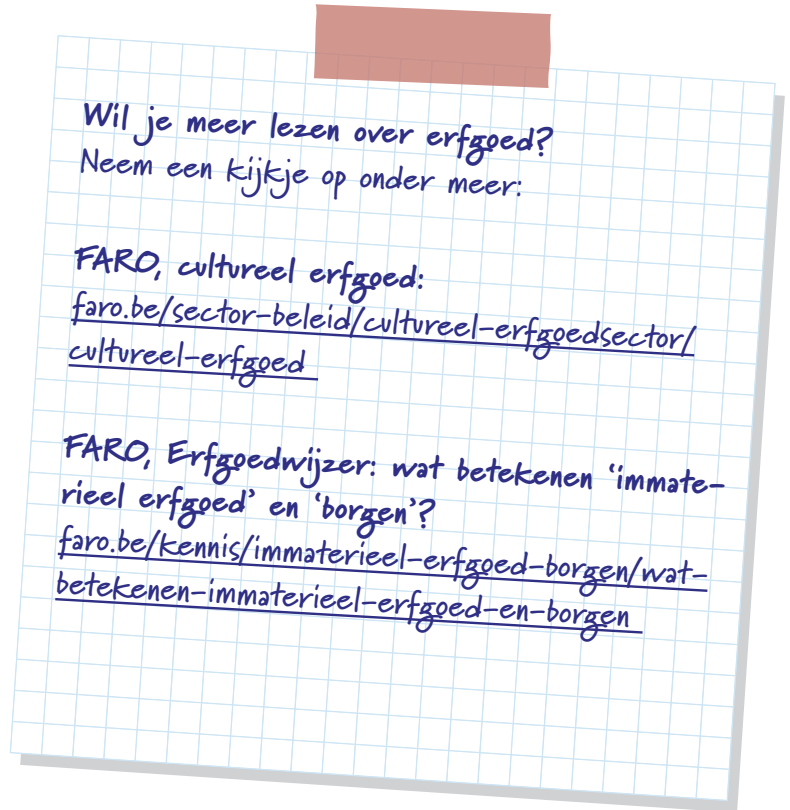 Wil je meer lezen over erfgoed?
Neem een kijkje op onder meer:
FARO, cultureel erfgoed:
faro.be/sector-beleid/cultureel-erfgoedsector/
cultureel-erfgoed
FARO, Erfgoedwijzer: wat betekenen ‘immate-
rieel erfgoed’ en ‘borgen’?
faro.be/kennis/immaterieel-erfgoed-borgen/wat-
betekenen-immaterieel-erfgoed-en-borgen